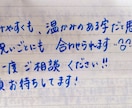 けやすくも、温かみのある字だと思
祝いごとにも 合わせられます
一度ご相談ください!!
お待ちしてます!